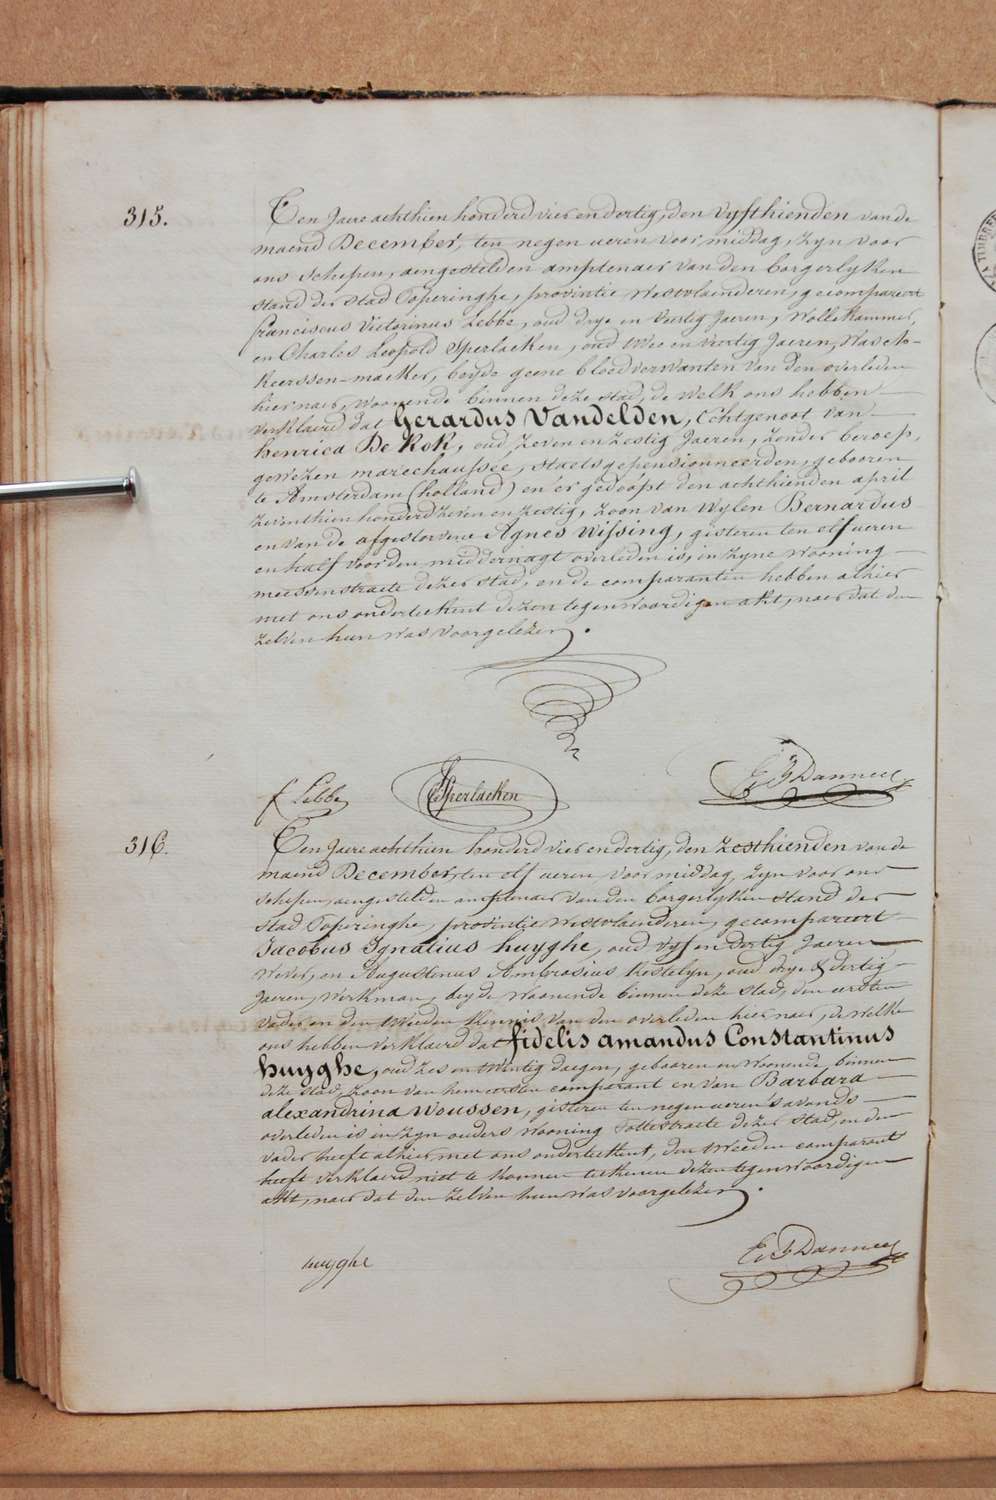 315.
Ten Jaere achthien honderd vier en dertig, den vyfthienden van de
maend December, ten negen ueren voor middag, zyn voor
ons Schepen, aengestelden amptenaer van den borgerlyken
stand der stad Poperinghe, provintie Westvlaenderen, gecompareert
franciscus Victorinus Lebbe, oud drye en veertig Jaeren, Wollekammer,
en Charles Leopold Sperlaeken, oud twee en veertig Jaeren, Was en
Keerssen-maeker, beyde geene bloedverwanten van den overleden
hier naer, woonende binnen deze stad, de welk ons hebben
verklaerd dat Gerardus Vandelden, Echtgenoot van
henrica De Kok, oud zeven en zestig Jaeren, zonder beroep,
gewezen marechaussee, staets gepensionneerden, gebooren
te Amsterdam (holland) en er gedoopt den achthienden april
zeventhien honderd zeven en zestig, zoon van wylen Bernardus
en van de afgestorvene Agnes Wissing, gisteren ten elf ueren
en half voor den middernagt overleden is, in zyne wooning
meessenstraete dezer stad, en de comparanten hebben alhier
met ons onderteekent dezen tegenwoordigen akt, naer dat den
zelven hun was voorgelezen.
f Lebbe
Sperlaeken
Danneel
316.
Ten Jaere achthien honderd vier en dertig, den zesthienden van de
maend December, ten elf ueren voor middag, zyn voor ons
schepen, aengestelden amptenaer van den borgerlyken stand der
stad Poperinghe, provintie Westvlaenderen, gecompareert
Jacobus Ignatius huyghe, oud vyf en dertig Jaeren
Wever, en Augustinus Ambrosius Kestelyn, oud drye & dertig
Jaeren, Werkman, beyde woonende binnen deze stad, den eersten
vader en den tweeden kennis van den overleden hier naer, de welke
ons hebben verklaerd dat fidelis amandus Constantinus
huyghe, oud zes en twintig daegen, gebooren en woonende binnen
deze stad, zoon van hem eersten comparant en van Barbara
alexandrina Woussen, gisteren ten negen ueren 's avonds
overleden is in zyn ouders wooning Pottestraete dezer stad, en den
vader heeft alhier met ons onderteekent, den tweeden comparant
heeft verklaerd niet te konnen teekenen dezen tegenwoordigen
akt, naer dat den zelven hun was voorgelezen.
huyghe
Danneel